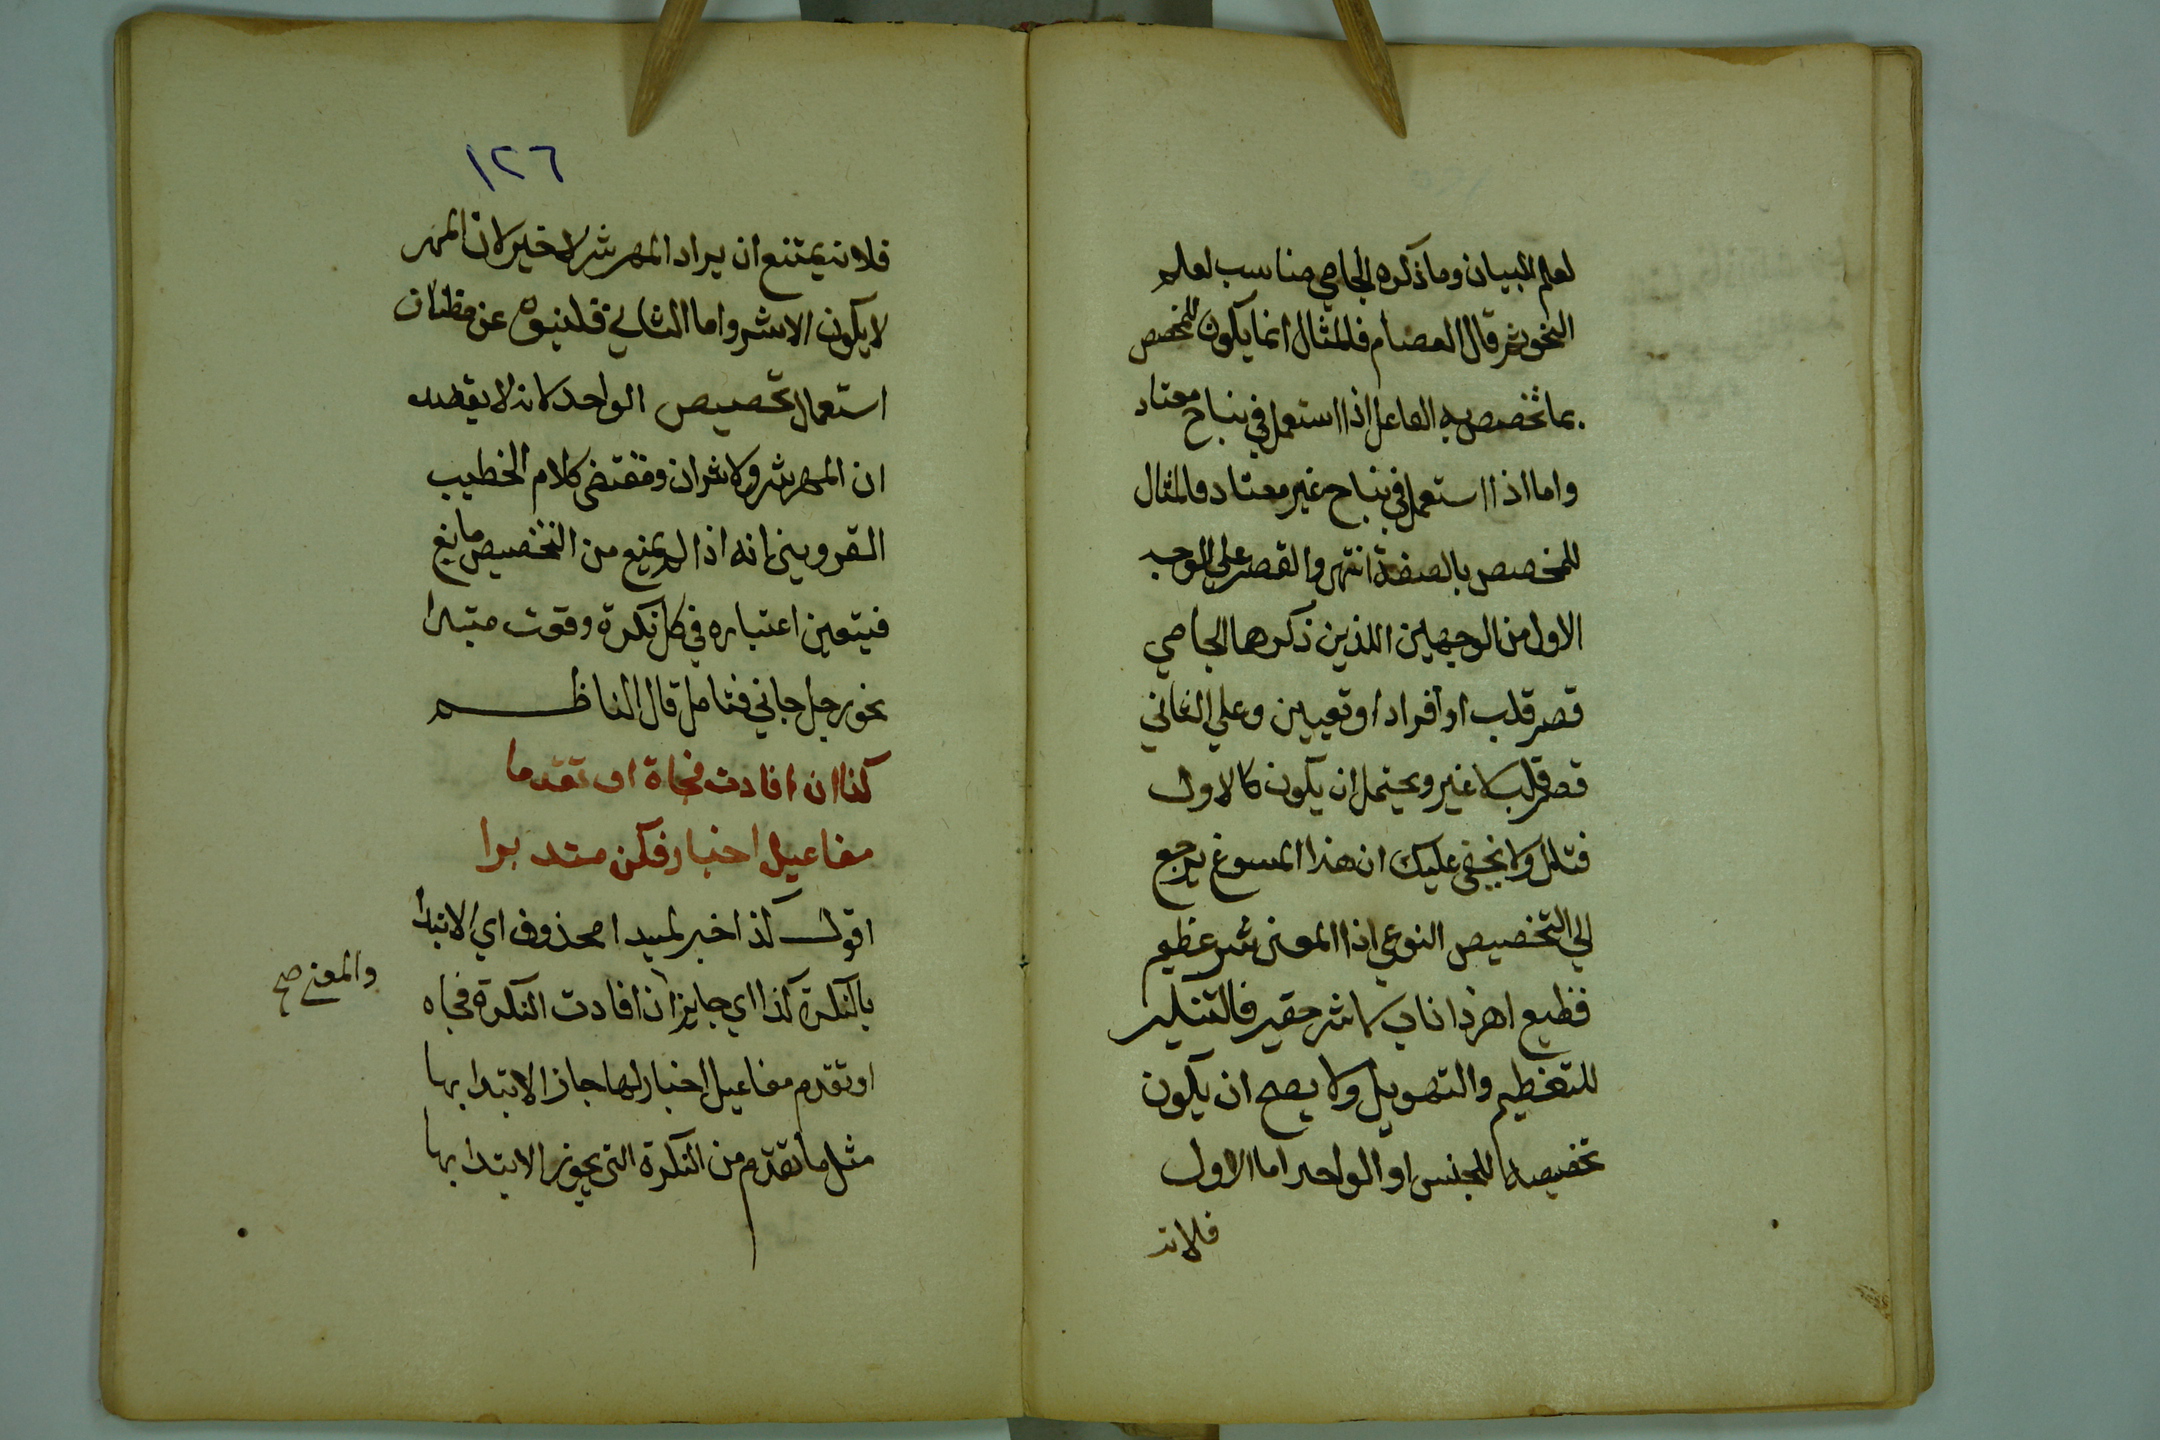 لعلم البيان وما ذكره الجامي مناسب لعلم
النحو ثم قال العصام فالمثال انما يكون للمخصص
بما تخصص به الفاعل اذا استعمل في نباح معتاد
واما اذا استعمل في نباح غير معتاد فالمثال
للمخصص بالصفة انتهى والقصر على الوجه
الاول من الوجهين اللذين ذكرها الجامي
قصر قلب او افراد او تعيين وعلي الثاني
قصر قلب لا غير ويحتمل ان يكون كالاول
فتامل ولا يخفى عليك ان هذا المسوغ يرجع
الي التخصيص النوعي اذ المعنى شر عظيم
فظيع اهر ذا ناب لا شر حقير فالتنكير
للتعظيم والتهويل ولا يصح ان يكون
تخصيصا للجنس او الواحد اما الاول
فلانه
١٢٦
فلانه يمتنع ان يراد المهر شر لا خير لان المهر
لا يكون الا شر واما الثاني فلنبوه عن مظان
استعمال تخصيص الواحد لانه لا يقصد
ان المهر شر ولا شران ومقتضى كلام الخطيب
القزويني انه اذا لم يمنع من التخصيص مانع
فيتعين اعتباره في كل نكرة وقوت مبتدا
نحو رجل جاني فتامل قال الناظم
كذا ان افادت فجاة او تقدما
مفاعيل اخبار فكن متدبرا
اقول كذا خبر لمبدا محذوف اي الابتدا
بالنكرة كذا اي جايز اذ افادت النكرة فجاه
والمعنى صح
او تقدم مفاعيل اخبار لها جاز الابتدا بها
مثل ما تقدم من النكرة التي يجوز الابتدا بها